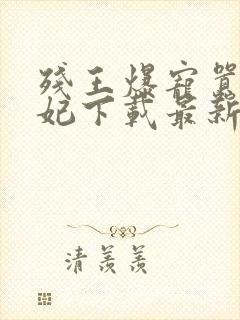 残王爆宠嚣
妃下载最新
清羡羡